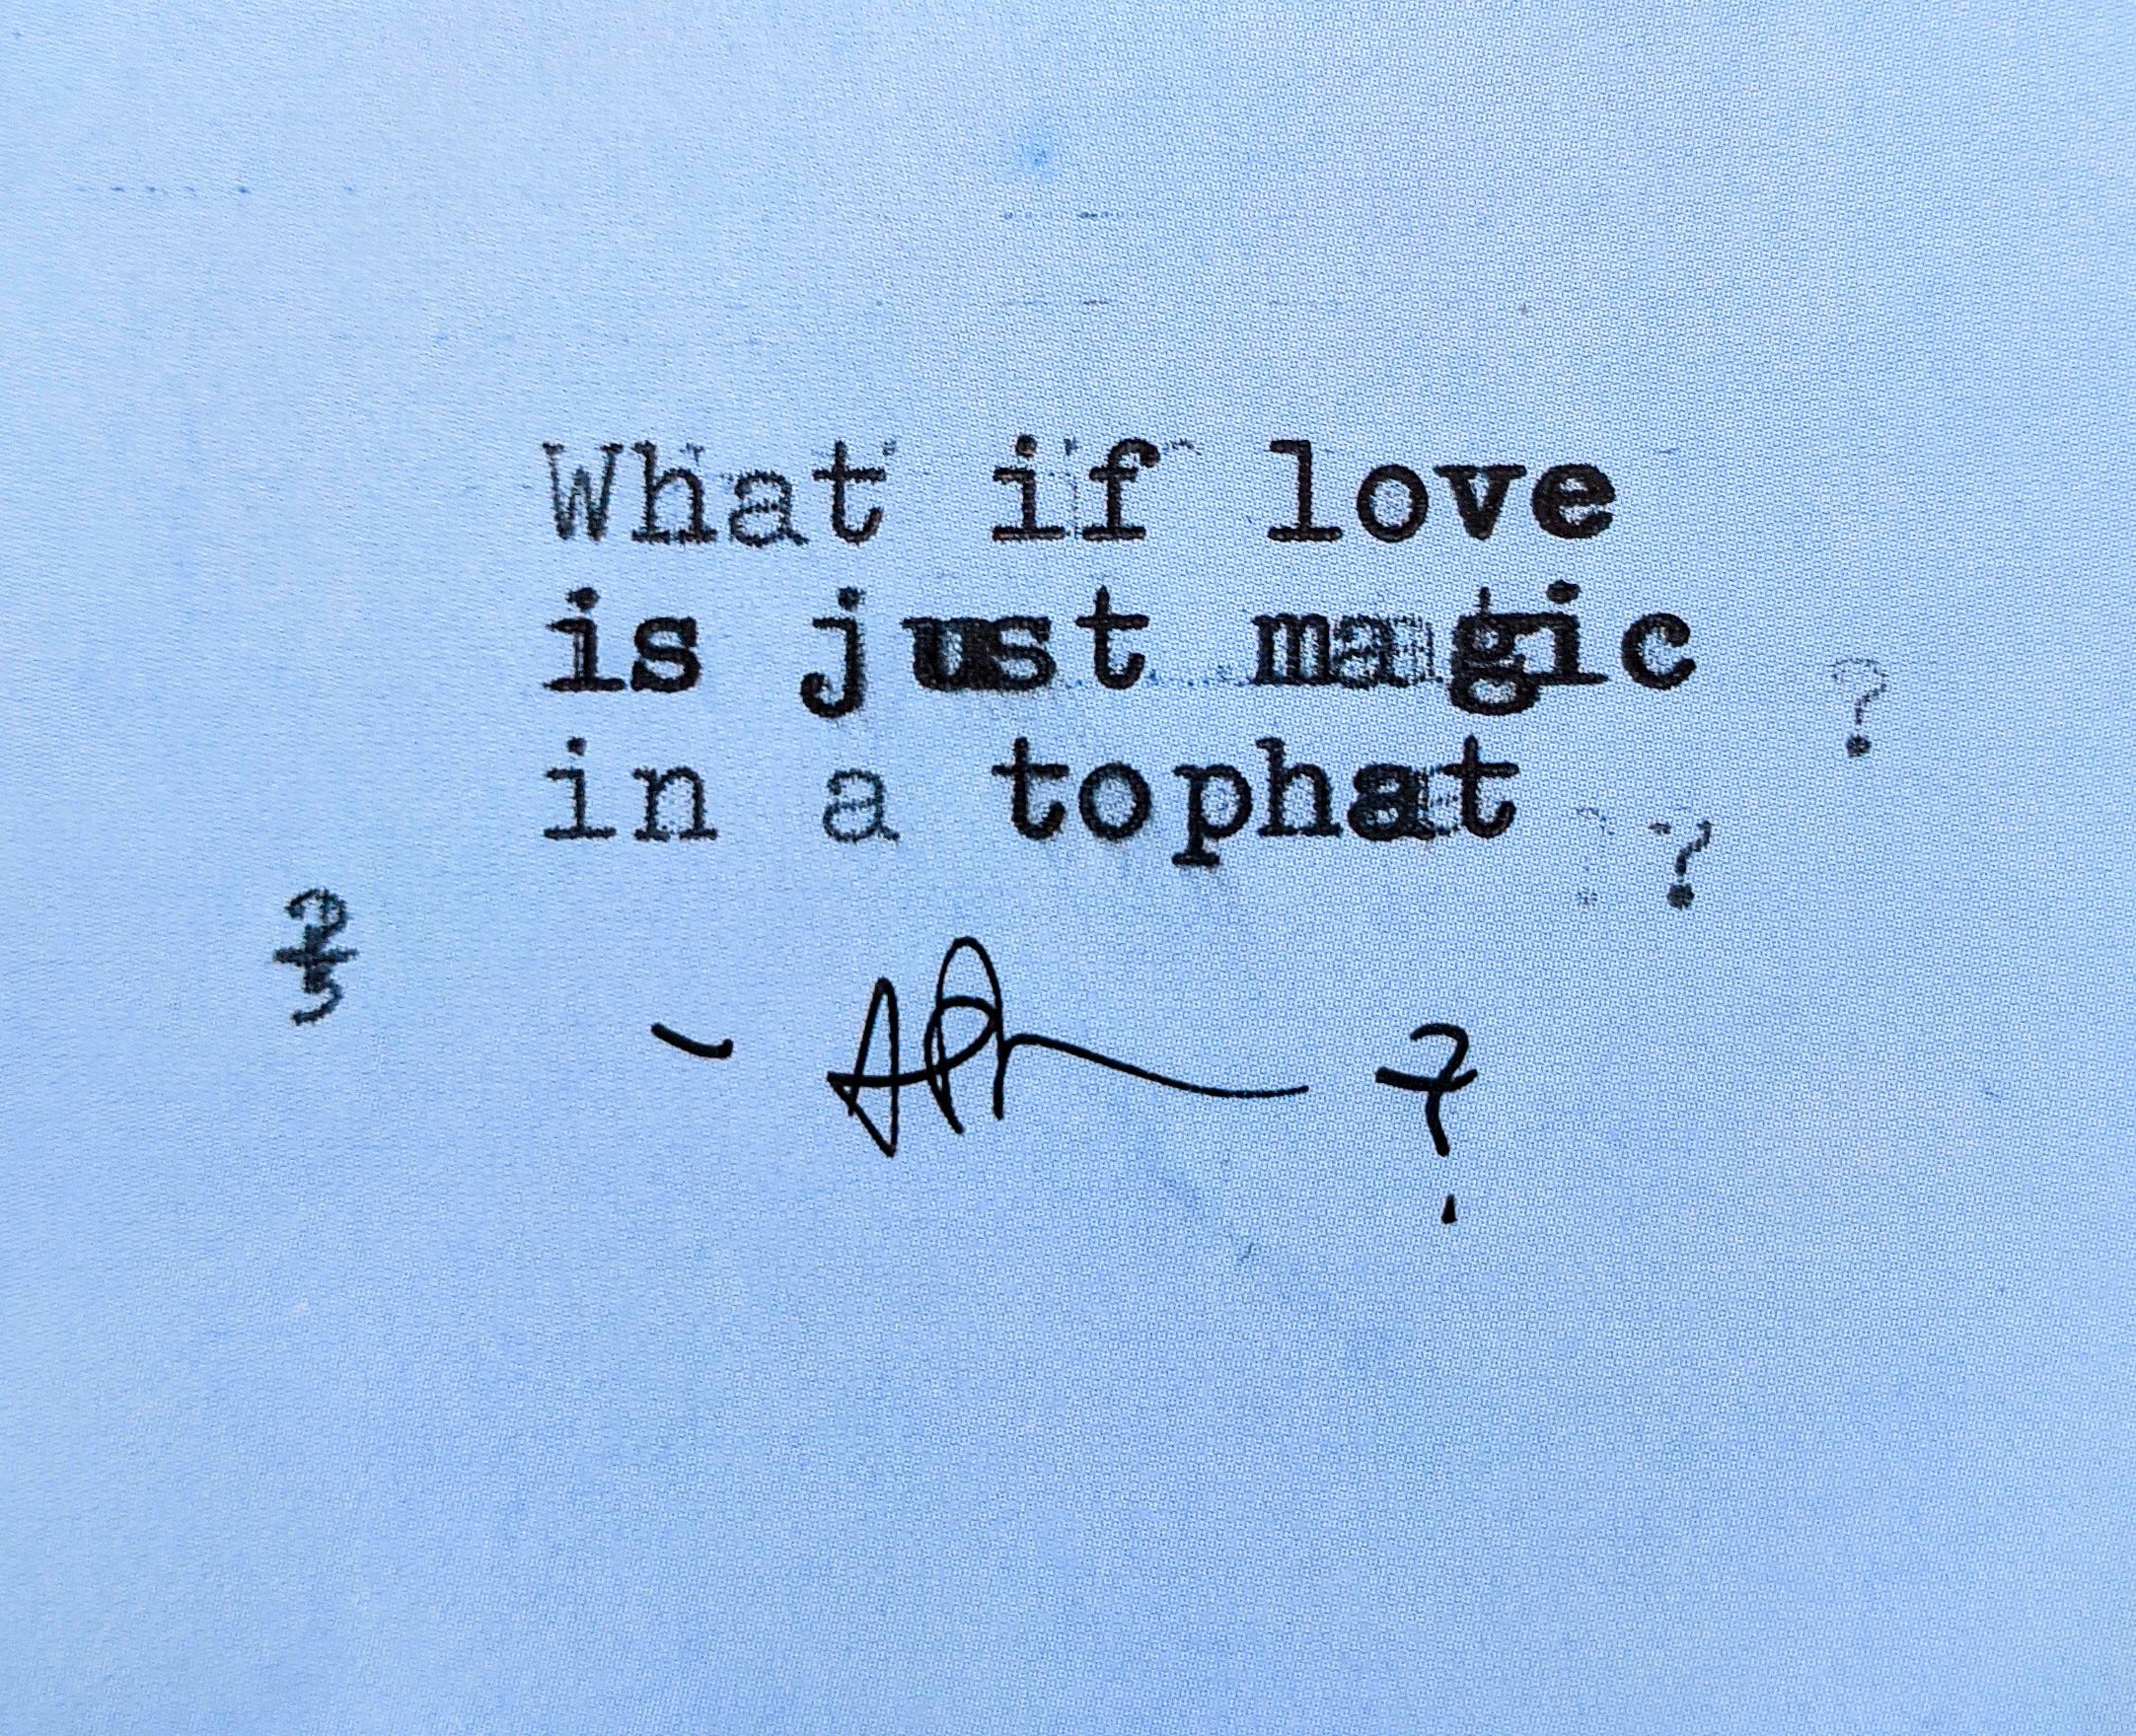 What if love
is just magic
in a tophat
?
?
?